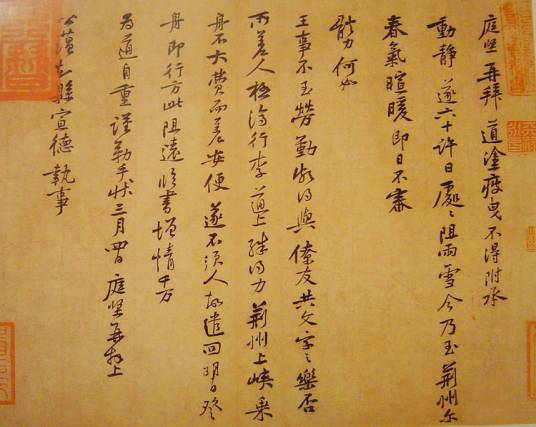 庭堅再拜道塗疲曳不得附承
動静遂六十許日處々阻雨雪今乃至荆州尔
春氣暄暖即日不審
體力何如
王事不至勞勤頗得與僚友共文字之樂否
所差人極濟行李道上殊得力荆州上峽乘
舟不大費而差安便遂不須人故遣回明日登
舟即行方此阻遠臨書增情千万
為道自重謹勒手狀三月四日庭堅再拜上
公蘊知縣宣德執事